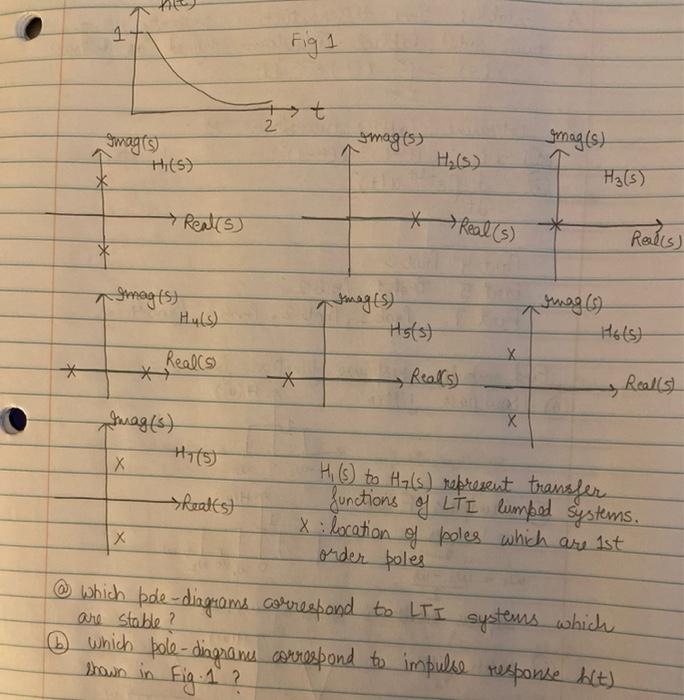 h(t)
1
Fig 1
t
2
Imag(s)
H₁(s)
Real(s)
Imag(s)
H₂(s)
Real(s)
Imag(s)
H₃(s)
Real(s)
Imag(s)
H₄(s)
Real(s)
Imag(s)
H₅(s)
Real(s)
Imag(s)
H₆(s)
Real(s)
Imag(s)
H₇(s)
Real(s)
H₁(s) to H₇(s) represent transfer
functions of LTI lumped systems.
X : location of poles which are 1st
order poles
ⓐ which pole-diagrams correspond to LTI systems which
are stable ?
ⓑ which pole-diagrams correspond to impulse response h(t)
shown in Fig.1 ?